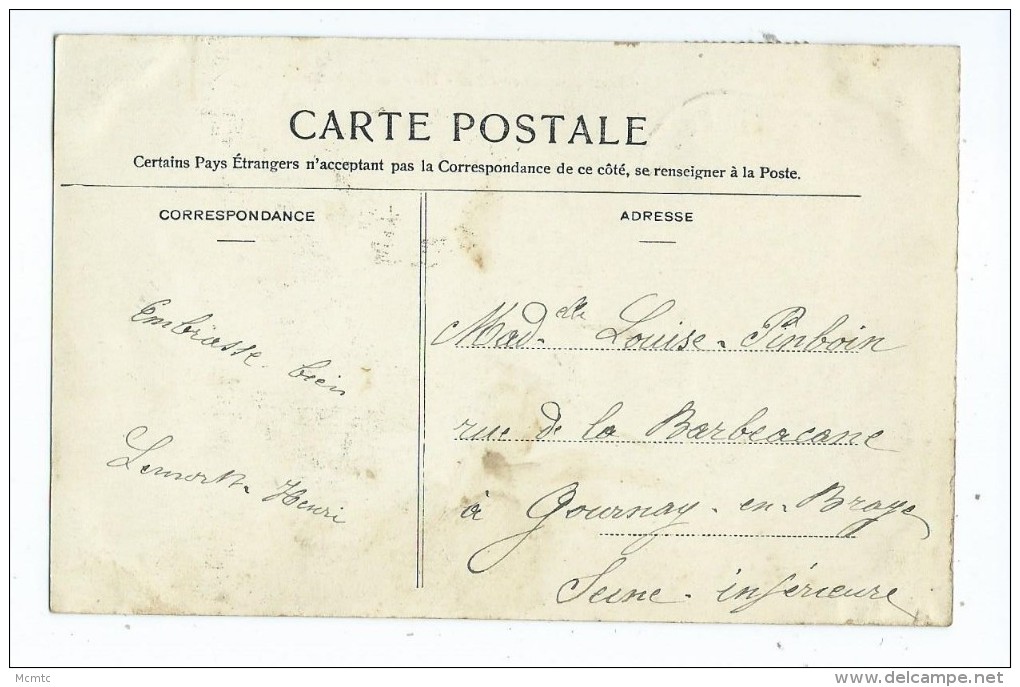 CARTE POSTALE
Certains Pays Étrangers n'acceptant pas la Correspondance de ce côté, se renseigner à la Poste.
CORRESPONDANCE
Embrasse bien
Henri
ADRESSE
Mad elle Louise Pinboin
rue de la Barbeacane
à Gournay-en-Braye
Seine-inférieure
Mcmtc
www.delcampe.net